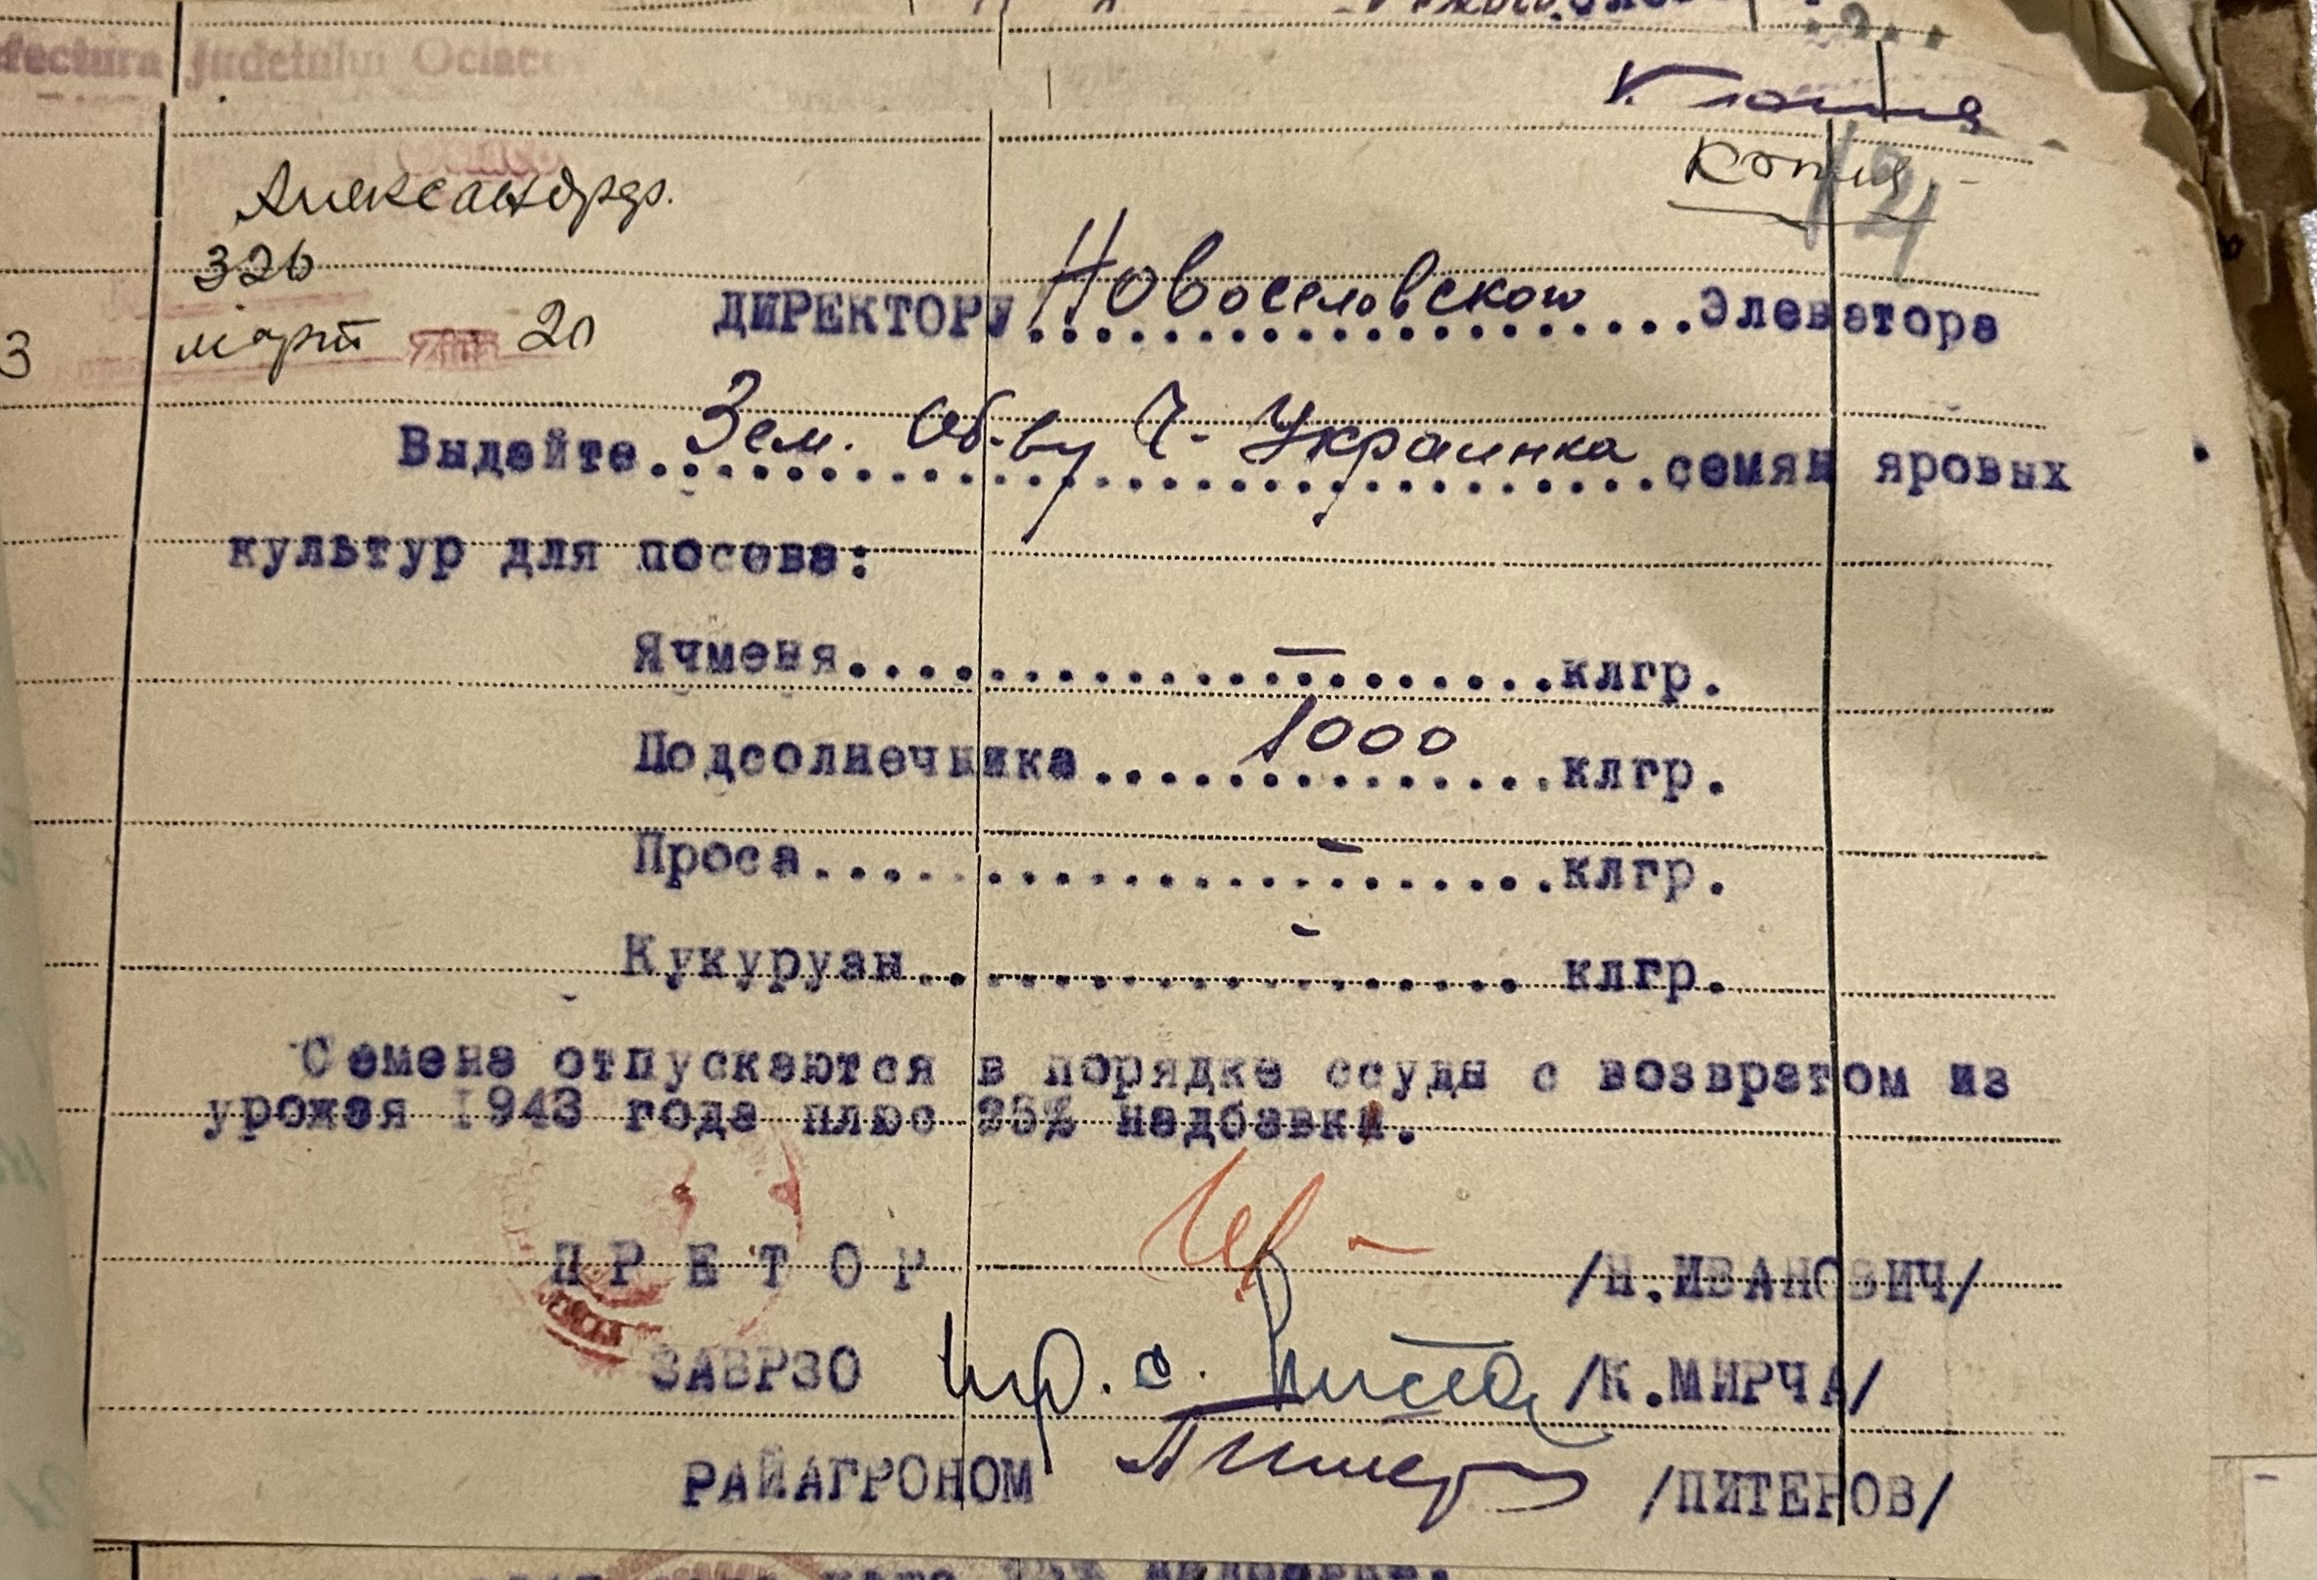 Judetului
Копия
Копия
Александрдр.
326
март 20
3
ДИРЕКТОРУ Новоселовского Элеватора
Выдайте Зем. Об-ву Ч-Украинка семян яровых
культур для посева:
Ячменя.................... — клгр.
Подсолнечника............. 1000 клгр.
Проса..................... - клгр.
Кукурузы.................. - клгр.
Семена отпускаются в порядке ссуды с возвратом из
урожая 1943 года плюс 25% надбавки.
ПРЕТОР /Н.ИВАНОВИЧ/
ЗАВРЗО /К.МИРЧА/
РАЙАГРОНОМ /ПИТЕРОВ/